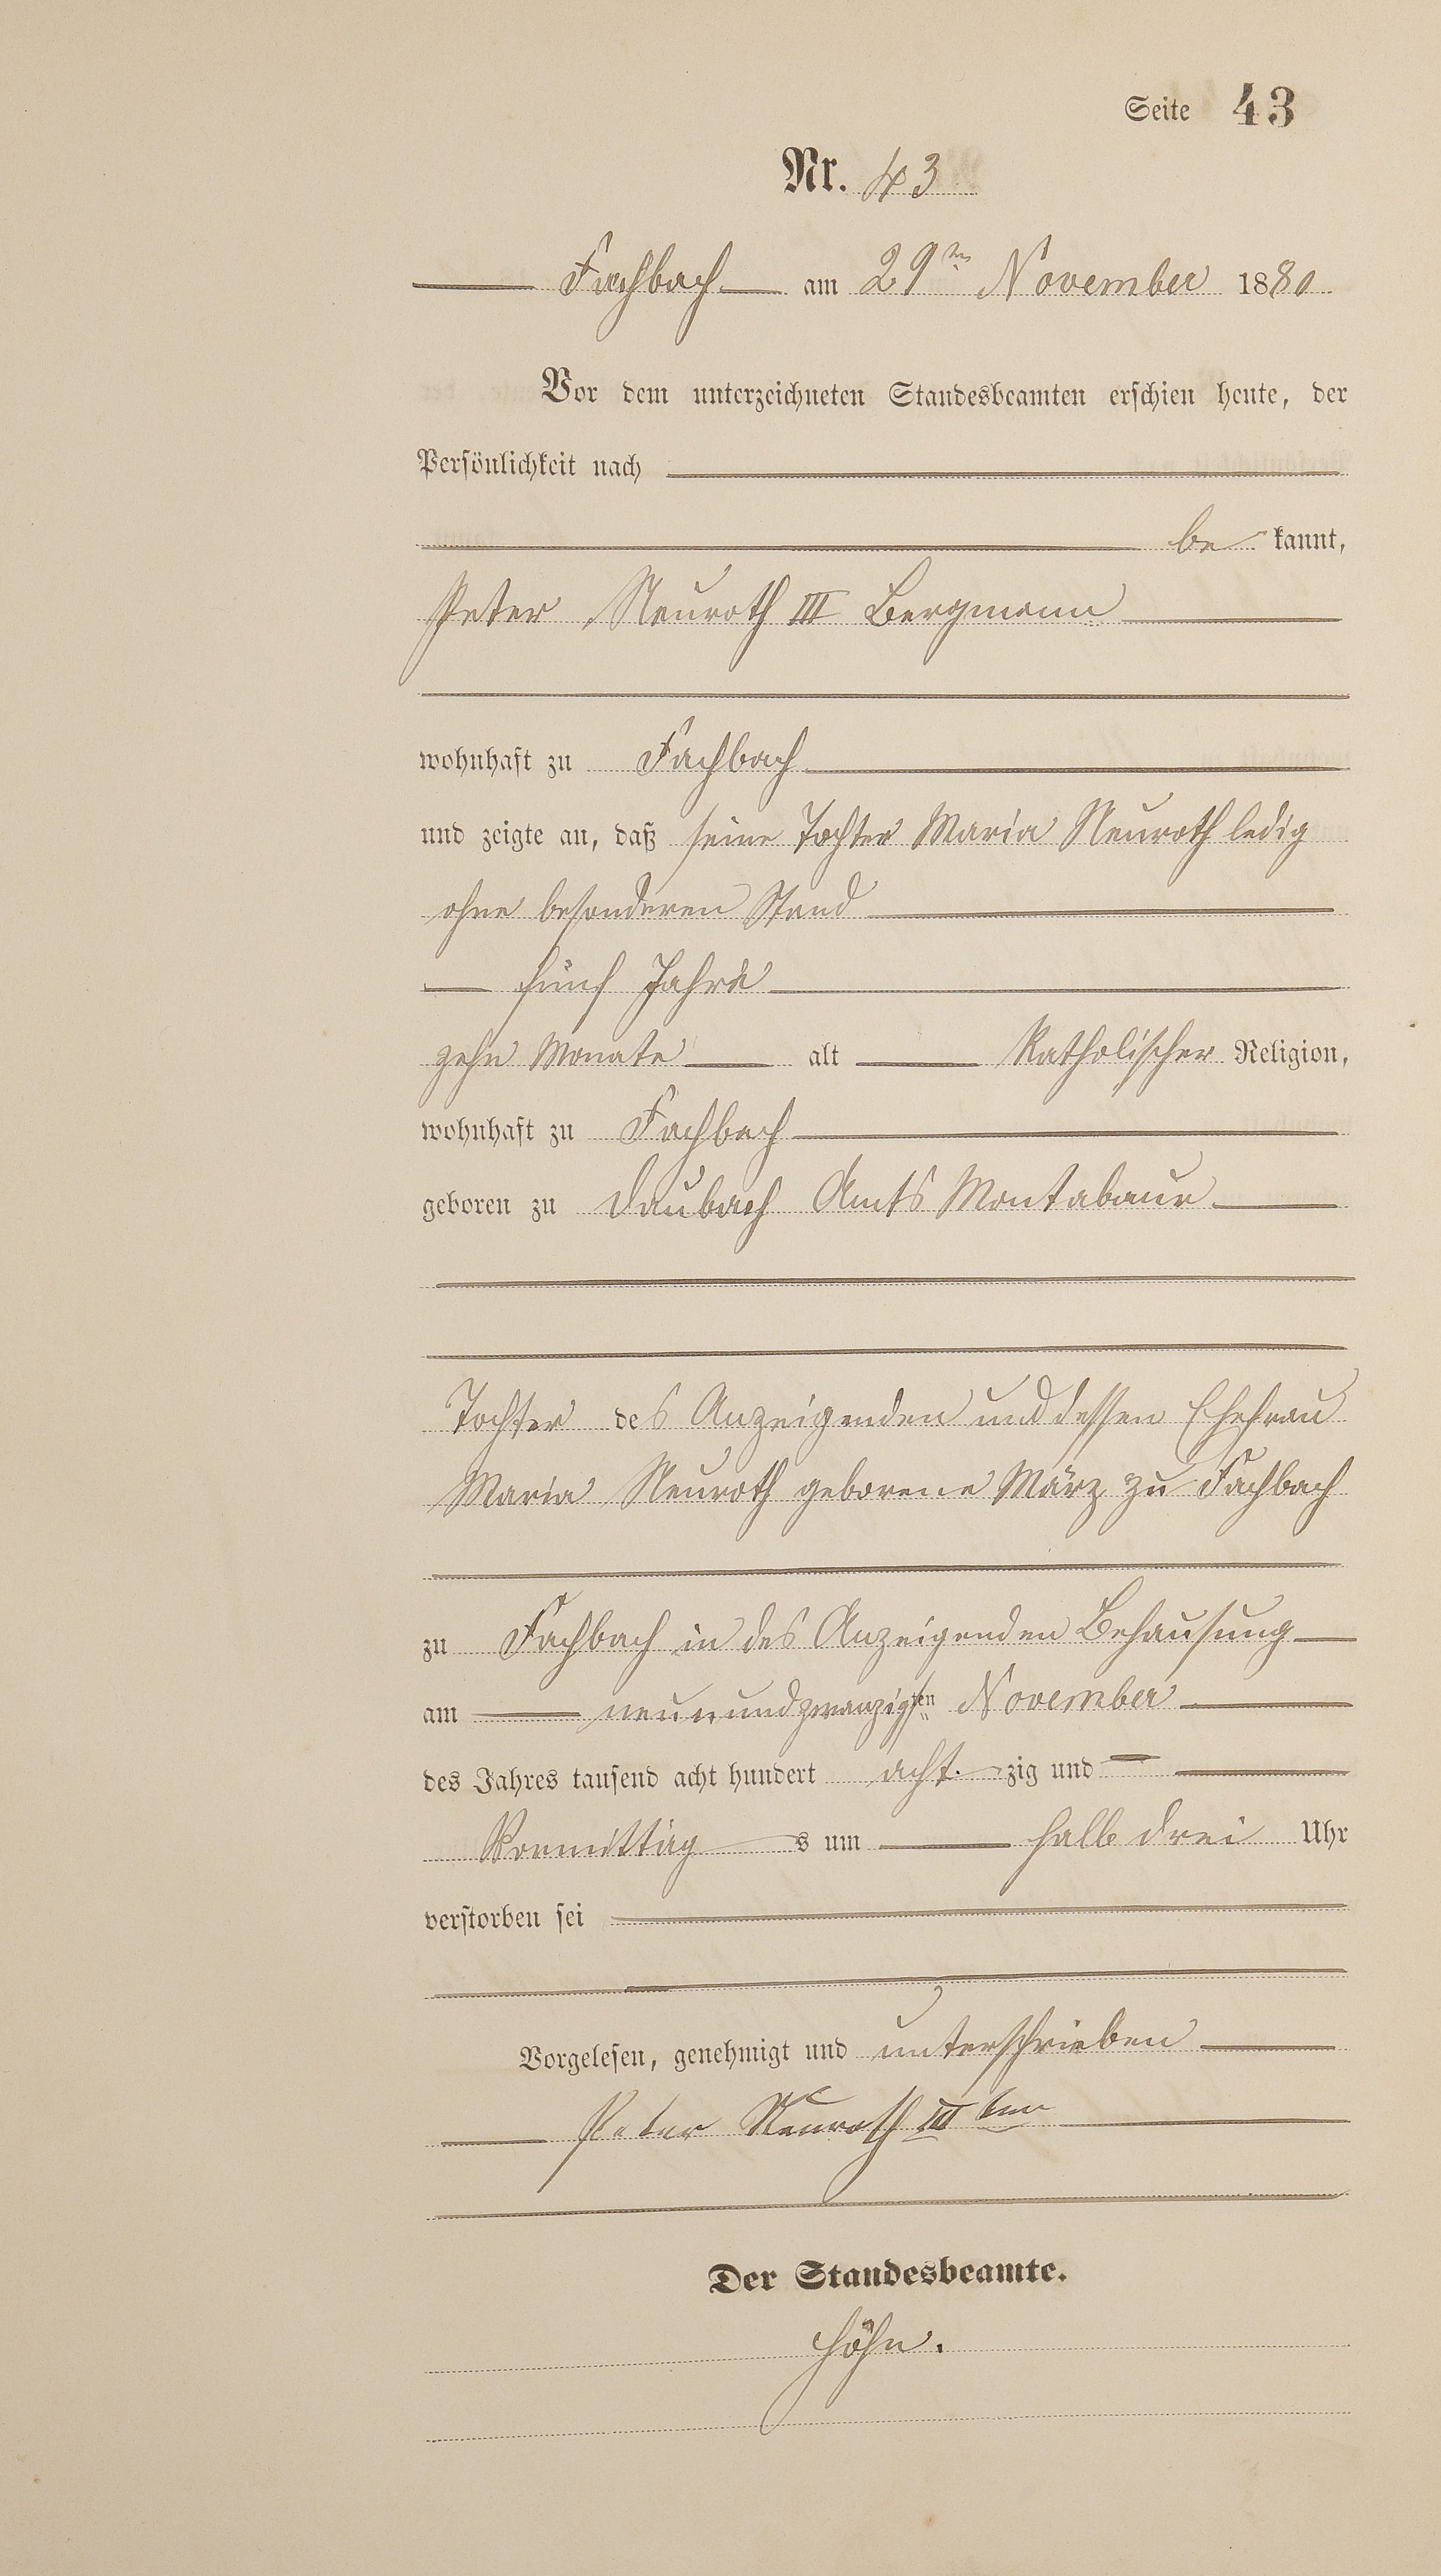 Seite 43
Nr. 43
Fachbach am 29ten November 1880
Vor dem unterzeichneten Standesbeamten erschien heute, der
Persönlichkeit nach
be kannt,
Peter Neuroth III Bergmann
wohnhaft zu Fachbach
und zeigte an, daß seine Tochter Maria Neuroth ledig
ohne besonderen Stand
fünf Jahre
zehn Monate alt Katholischer Religion,
wohnhaft zu Fachbach
geboren zu Daubach Amts Montabaur
Tochter des Anzeigenden und dessen Ehefrau
Maria Neuroth geborene März zu Fachbach
zu Fachbach in des Anzeigenden Behausung
am neunundzwanzigsten November
des Jahres tausend acht hundert acht zig und
Vormittag s um halb drei Uhr
verstorben sei
Vorgelesen, genehmigt und unterschrieben
Peter Neuroth III ten
Der Standesbeamte.
Höhn.